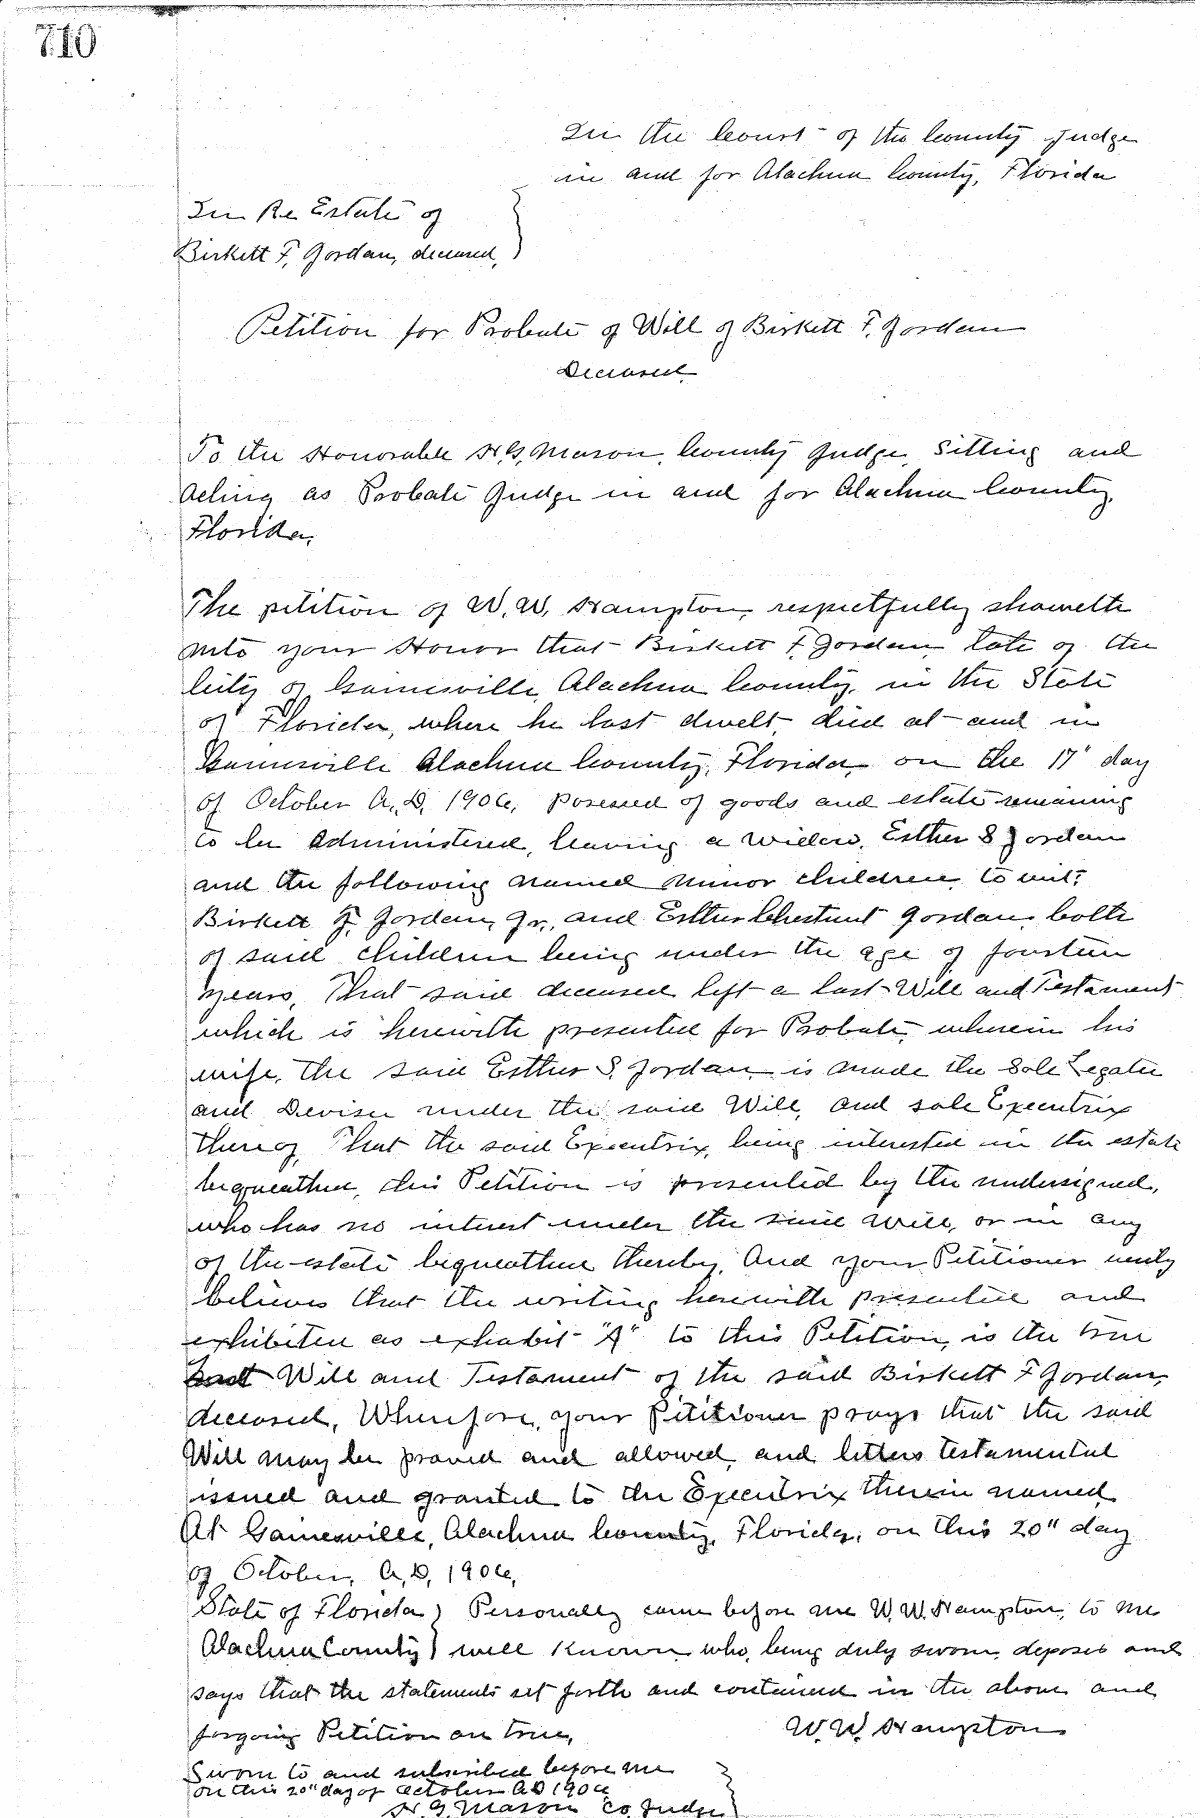 710
In the Court of the County Judge
in and for Alachua County, Florida
In Re Estate of
Birkett F. Jordan, deceased,
Petition for Probate of Will of Birkett F. Jordan
Deceased.
To the Honorable H. G. Mason, County Judge, Sitting and
Acting as Probate Judge in and for Alachua County,
Florida,
The petition of W. W. Hampton, respectfully showeth
unto your Honor that Birkett F. Jordan, late of the
City of Gainesville, Alachua County, in the State
of Florida, where he last dwelt, died at and in
Gainesville Alachua County, Florida, on the 17" day
of October A.D. 1906, posessed of goods and estate remaining
to be administered, leaving a widow, Esther S Jordan
and the following named minor children, to wit:
Birkett F. Jordan, Jr., and Esther Chestnut Jordan, both
of said children being under the age of fourteen
years, That said deceased left a last Will and Testament
which is herewith presented for Probate, wherein his
wife, the said Esther S. Jordan, is made the Sole Legatee
and Devisee under the said Will, and sole Executrix
thereof, That the said Executrix, being interested in the estate
bequeathed, this Petition is presented by the undersigned,
who has no interest under the said will, or in any
of the estate bequeathed thereby. And your Petitioner verily
believes that the writing herewith presented and
exhibited as exhabit "A" to this Petition, is the true
last Will and Testament of the said Birkett F Jordan,
deceased, Wherefore, your Petitioner prays that the said
Will may be proved and allowed, and letters testamental
issued and granted to the Executrix therein named.
At Gainesville, Alachua County, Florida, on this 20" day
of October, A.D, 1906,
State of Florida ) Personally came before me W. W. Hampton, to me
Alachua County ) well known who, being duly sworn, deposes and
says that the statements set forth and contained in the above and
forgoing Petition are true,
W. W. Hampton
Sworn to and subscribed before me
on this 20" day of October A D 1906
H. G. Mason Co. Judge